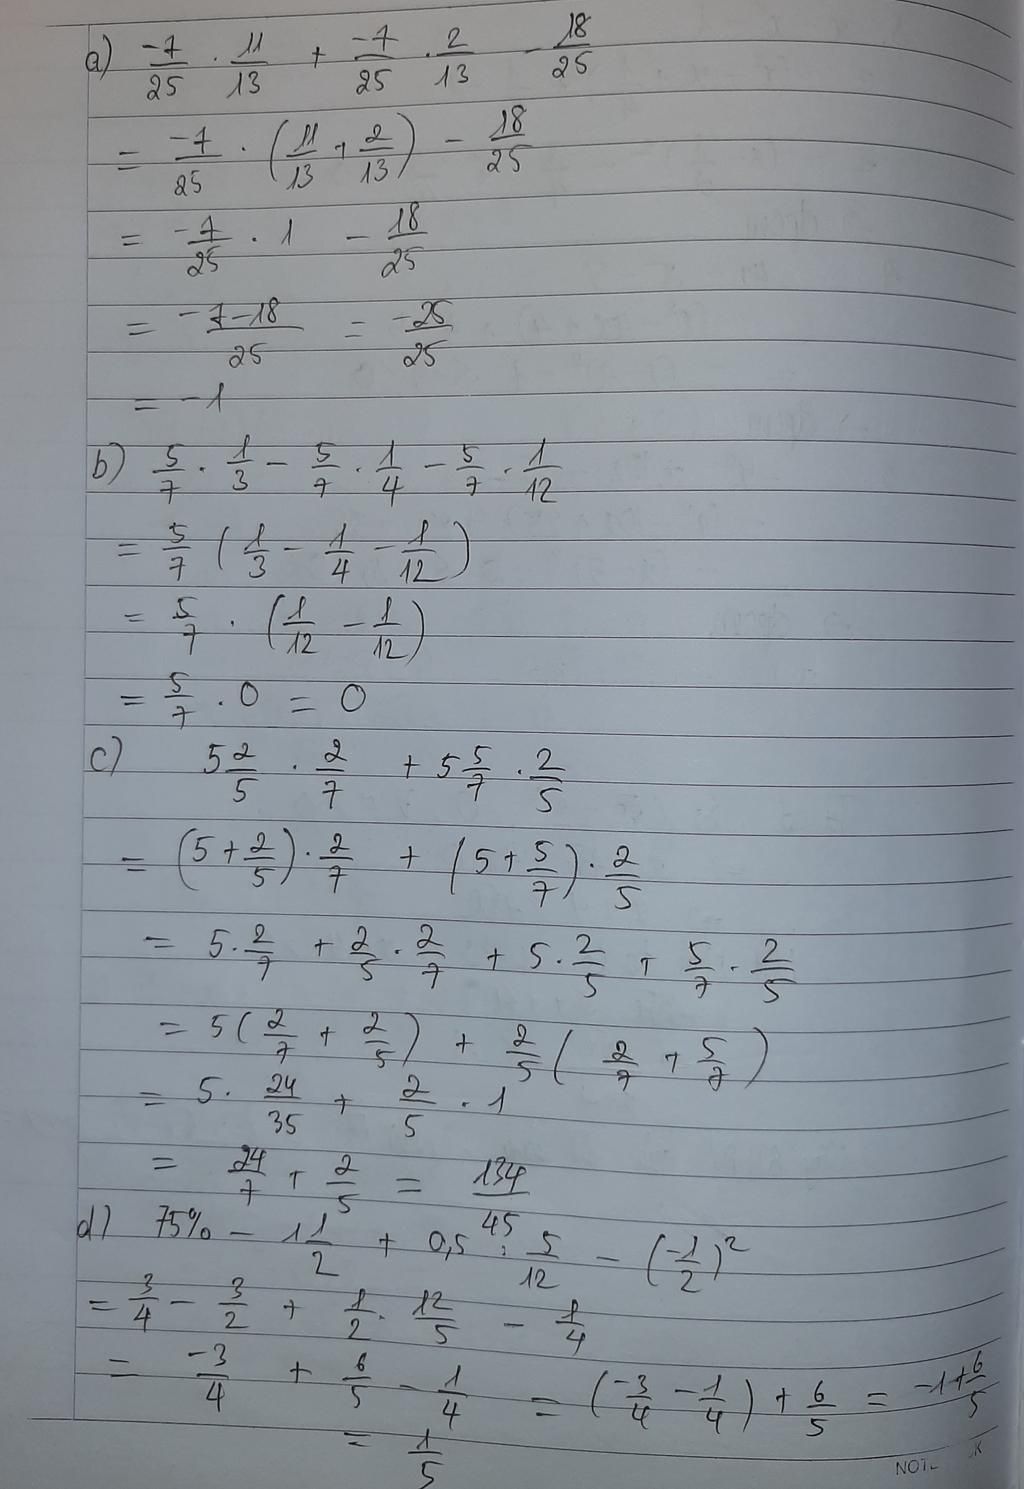 a) -7/25 . 11/13 + -7/25 . 2/13 - 18/25
= -7/25 . (11/13 + 2/13) - 18/25
= -7/25 . 1 - 18/25
= -7-18/25 = -25/25
= -1
b) 5/7 . 1/3 - 5/7 . 1/4 - 5/7 . 1/12
= 5/7 (1/3 - 1/4 - 1/12)
= 5/7 . (1/12 - 1/12)
= 5/7 . 0 = 0
c) 5 2/5 . 2/7 + 5 5/7 . 2/5
= (5 + 2/5) . 2/7 + (5 + 5/7) . 2/5
= 5 . 2/7 + 2/5 . 2/7 + 5 . 2/5 + 5/7 . 2/5
= 5 (2/7 + 2/5) + 2/5 (2/7 + 5/7)
= 5 . 24/35 + 2/5 . 1
= 24/7 + 2/5 = 134/45
d) 75% - 1 1/2 + 0,5 : 5/12 - (-1/2)²
= 3/4 - 3/2 + 1/2 . 12/5 - 1/4
= -3/4 + 6/5 - 1/4 = (-3/4 - 1/4) + 6/5 = -1 + 6/5
= 1/5